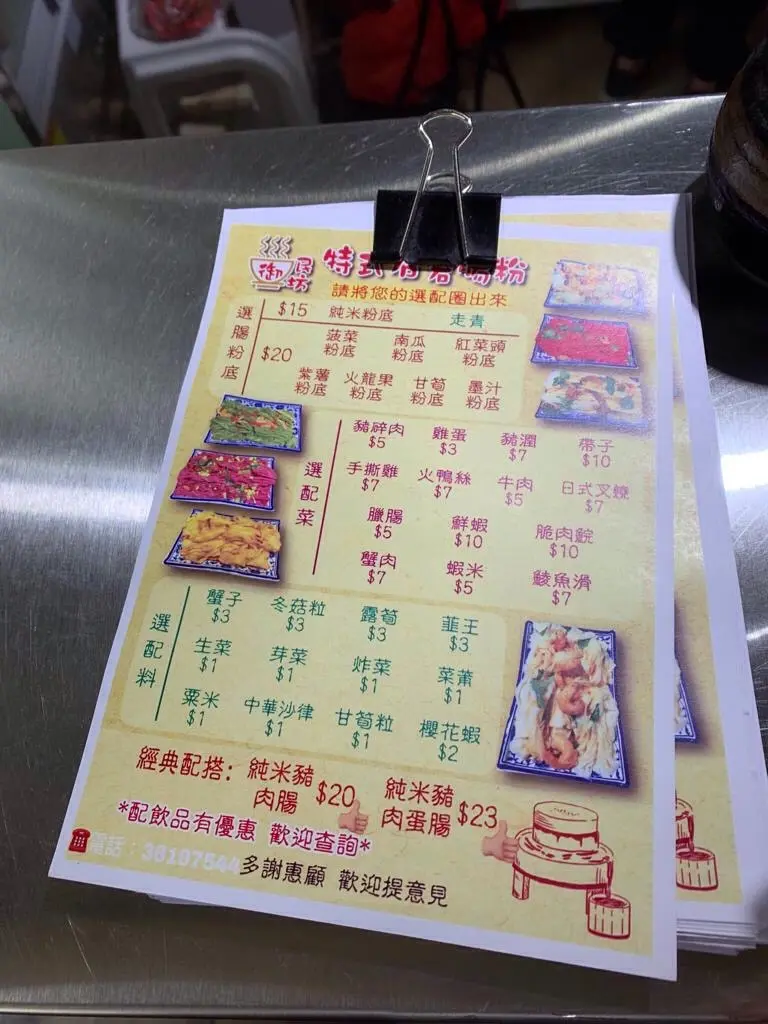 御
廚坊
特式石磨腸粉
請將您的選配圈出來
選腸粉底
$15 純米粉底 走青
$20
菠菜粉底 南瓜粉底 紅菜頭粉底
紫薯粉底 火龍果粉底 甘荀粉底 墨汁粉底
選配菜
豬碎肉 雞蛋 豬潤 帶子
$5 $3 $7 $10
手撕雞 火鴨絲 牛肉 日式叉燒
$7 $7 $5 $7
臘腸 鮮蝦 脆肉鯇
$5 $10 $10
蟹肉 蝦米 鯪魚滑
$7 $5 $7
選配料
蟹子 冬菇粒 露荀 韮王
$3 $3 $3 $3
生菜 芽菜 炸菜 菜莆
$1 $1 $1 $1
粟米 中華沙律 甘荀粒 櫻花蝦
$1 $1 $1 $2
經典配搭：純米豬肉腸 $20 純米豬肉蛋腸 $23
*配飲品有優惠 歡迎查詢*
電話：36107544
多謝惠顧 歡迎提意見